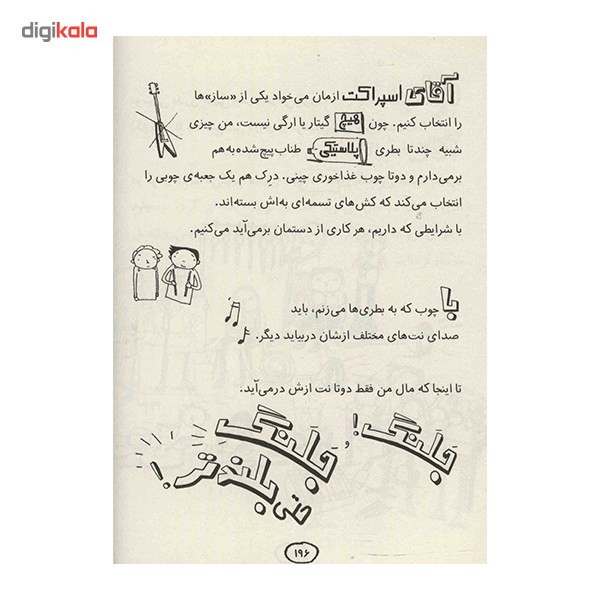 digikala
آقای اسپراکت ازمان می‌خواد یکی از «ساز»ها
را انتخاب کنیم. چون هیچ گیتار یا ارگی نیست، من چیزی
شبیه چندتا بطری پلاستیکی طناب‌پیچ‌شده‌به‌هم
برمی‌دارم و دوتا چوب غذاخوری چینی. درِک هم یک جعبه‌ی چوبی را
انتخاب می‌کند که کش‌های تسمه‌ای به‌اش بسته‌اند.
با شرایطی که داریم، هر کاری از دستمان برمی‌آید می‌کنیم.
با چوب که به بطری‌ها می‌زنم، باید
صدای نت‌های مختلف ازشان دربیاید دیگر.
تا اینجا که مال من فقط دوتا نت ازش درمی‌آید.
جَلَنگ!، جَلَنگ
حتی بلندتر!
۱۹۶